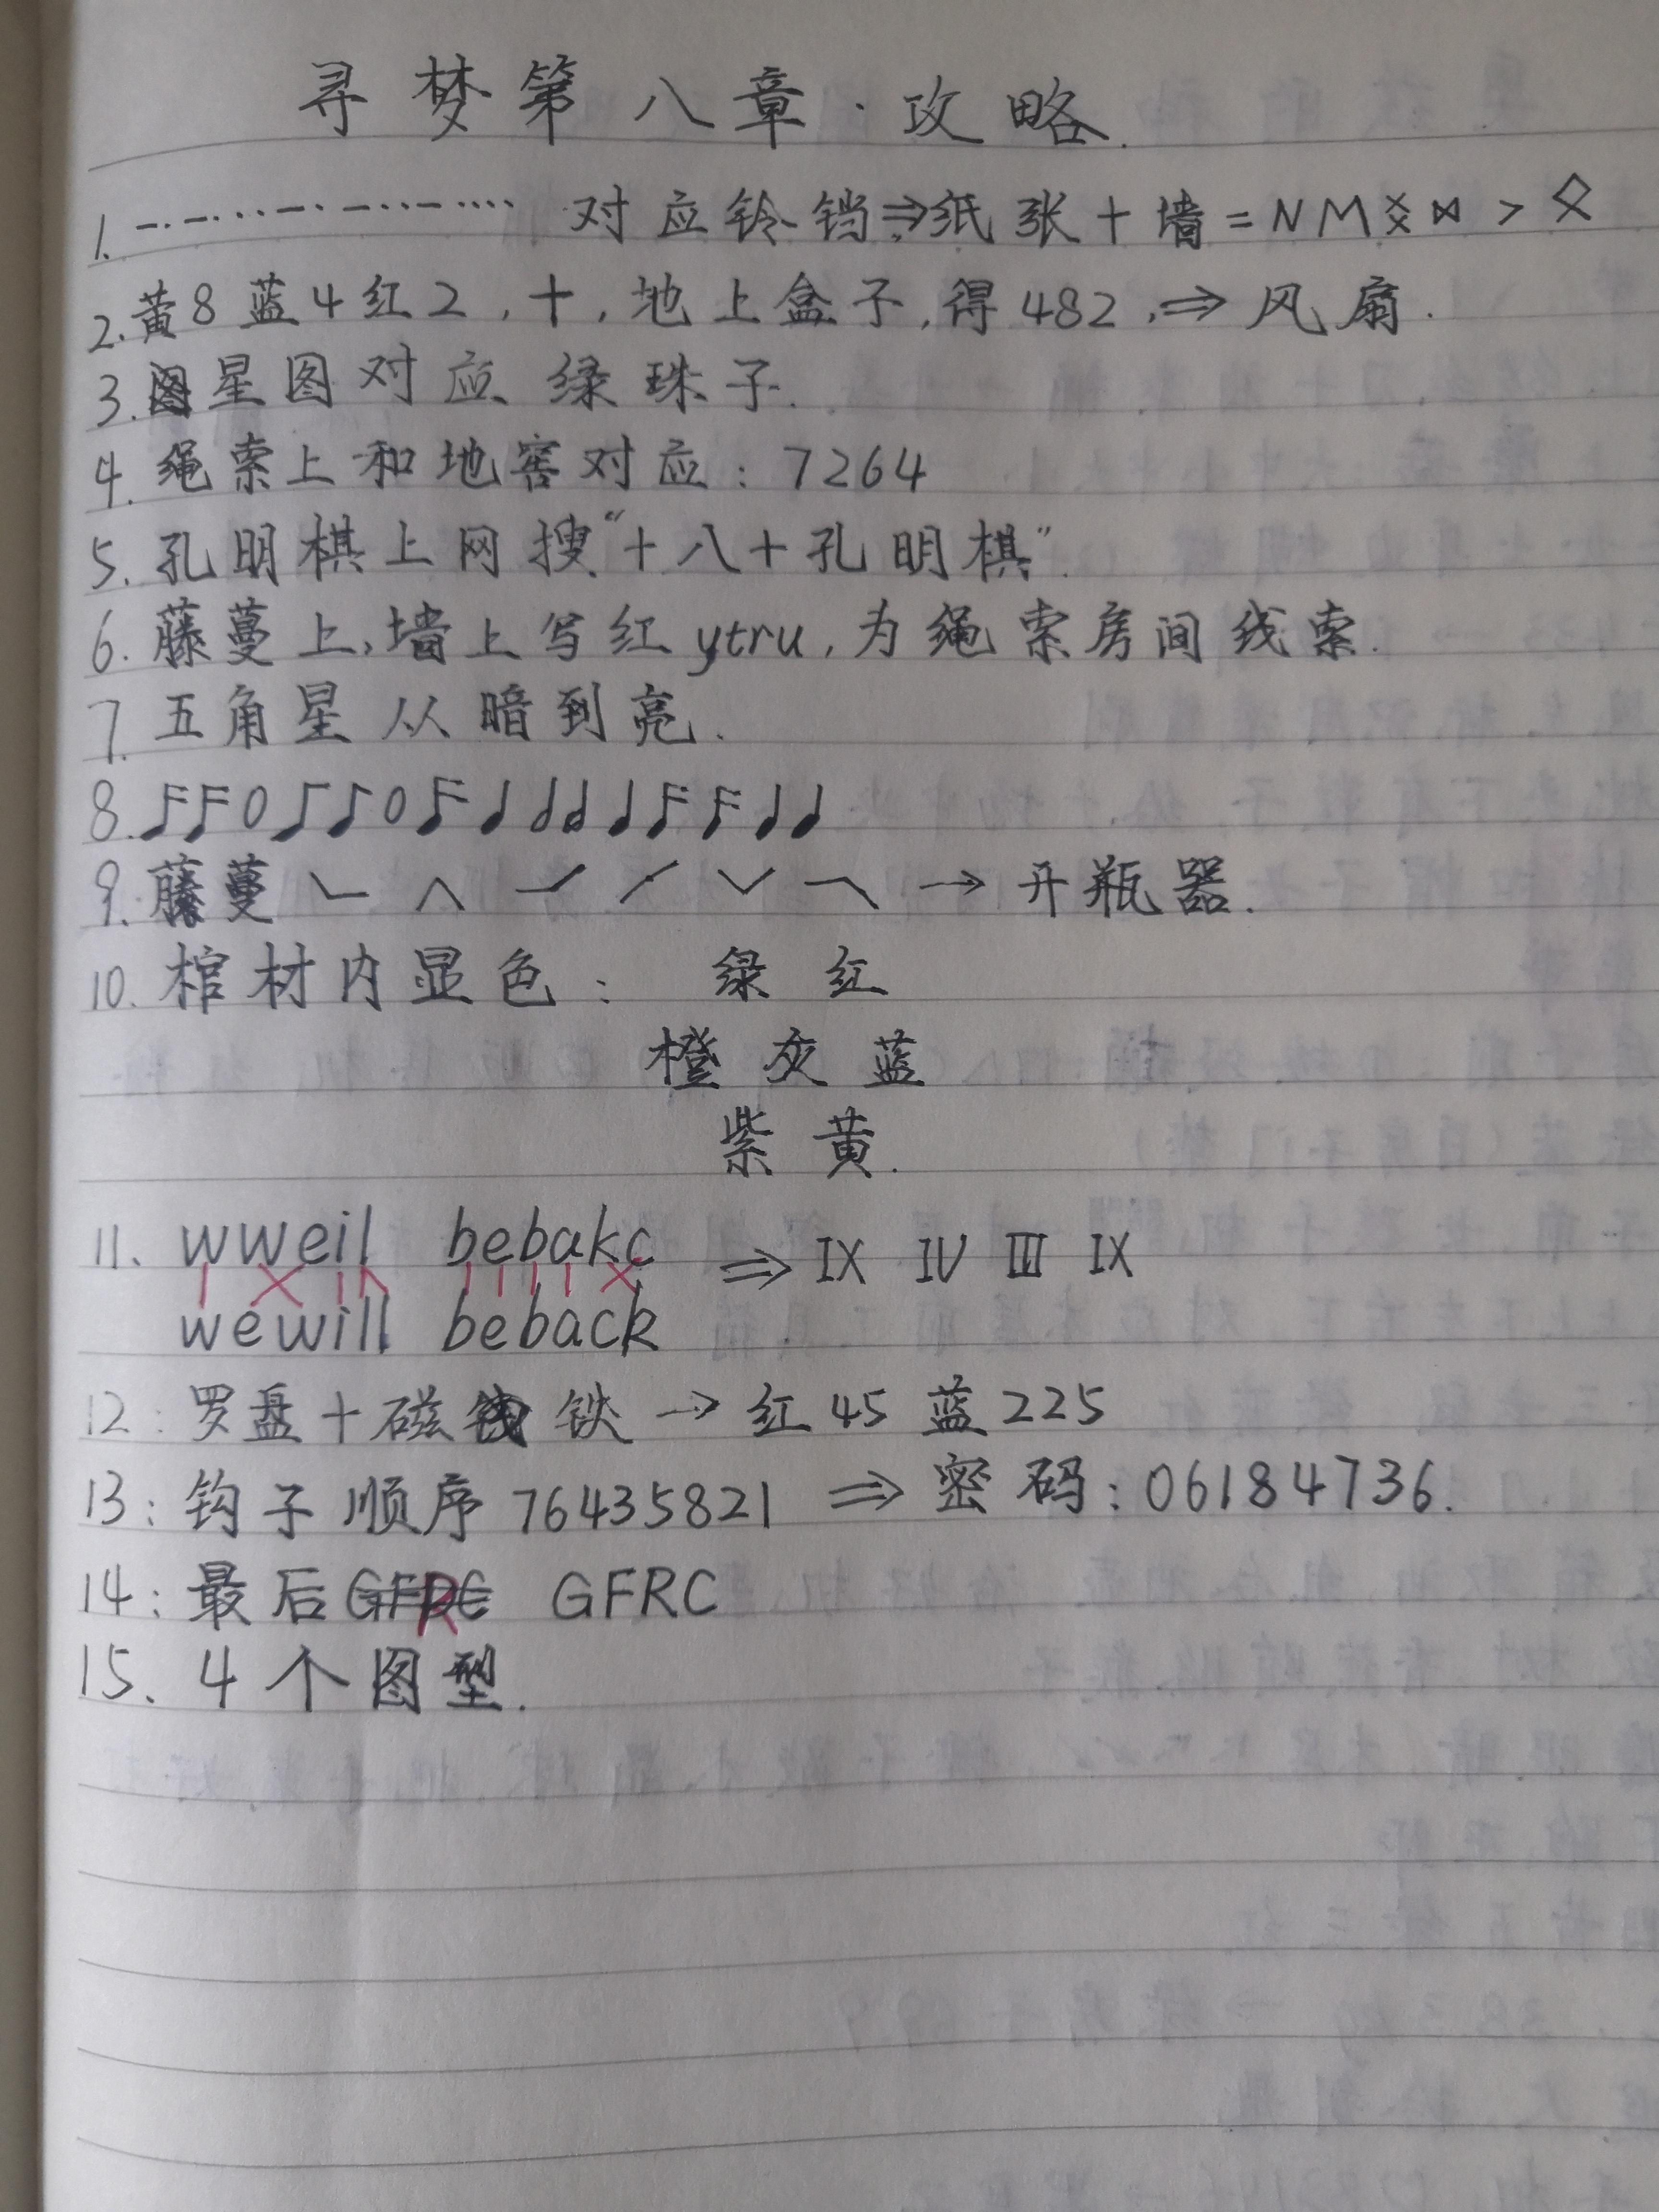 寻梦第八章·攻略.
1. 对应铃铛⇒纸张+墙=
2.黄8蓝4红2,十,地上盒子,得482,⇒风扇.
3.星图对应绿珠子.
4.绳索上和地窖对应:7264
5.孔明棋上网搜“十八十孔明棋”.
6.藤蔓上,墙上写红ytru,为绳索房间线索.
7.五角星从暗到亮.
8.
9.藤蔓 → 开瓶器.
10.棺材内显色: 绿 红
橙 灰 蓝
紫 黄.
11、wweil bebakc ⇒ IX IV III IX
wewill beback
12:罗盘+磁铁→红45蓝225
13:钩子顺序76435821 ⇒ 密码:06184736.
14:最后 GFRC
15、4个图型.